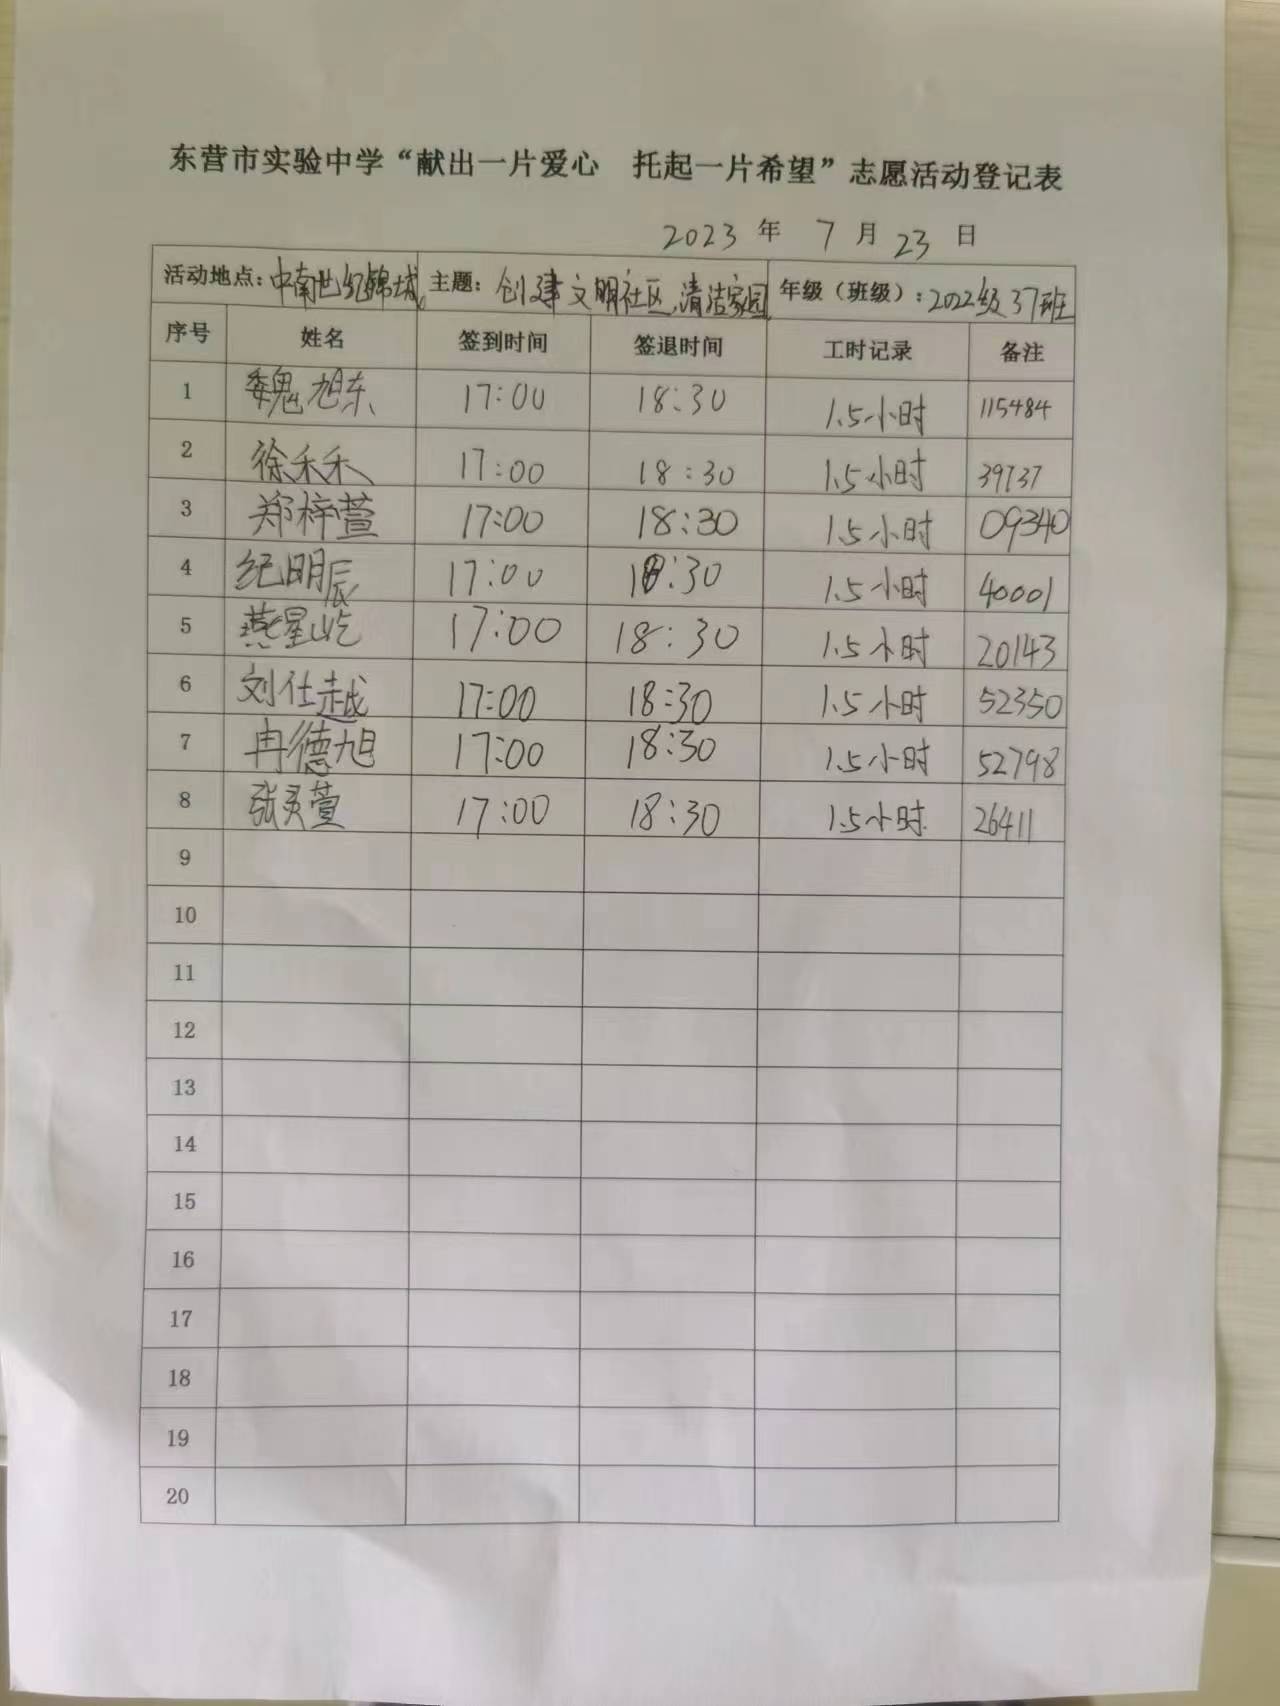 东营市实验中学“献出一片爱心 托起一片希望”志愿活动登记表
2023 年 7 月 23 日
活动地点：中南世纪锦城 主题：创建文明社区,清洁家园 年级（班级）：2022级37班
序号 姓名 签到时间 签退时间 工时记录 备注
1 魏旭东 17:00 18:30 1.5小时 115484
2 徐禾禾 17:00 18:30 1.5小时 39737
3 郑梓萱 17:00 18:30 1.5小时 09340
4 纪明辰 17:00 18:30 1.5小时 40001
5 燕星屹 17:00 18:30 1.5小时 20143
6 刘仕越 17:00 18:30 1.5小时 52350
7 冉德旭 17:00 18:30 1.5小时 52798
8 张灵萱 17:00 18:30 1.5小时 26411
9
10
11
12
13
14
15
16
17
18
19
20